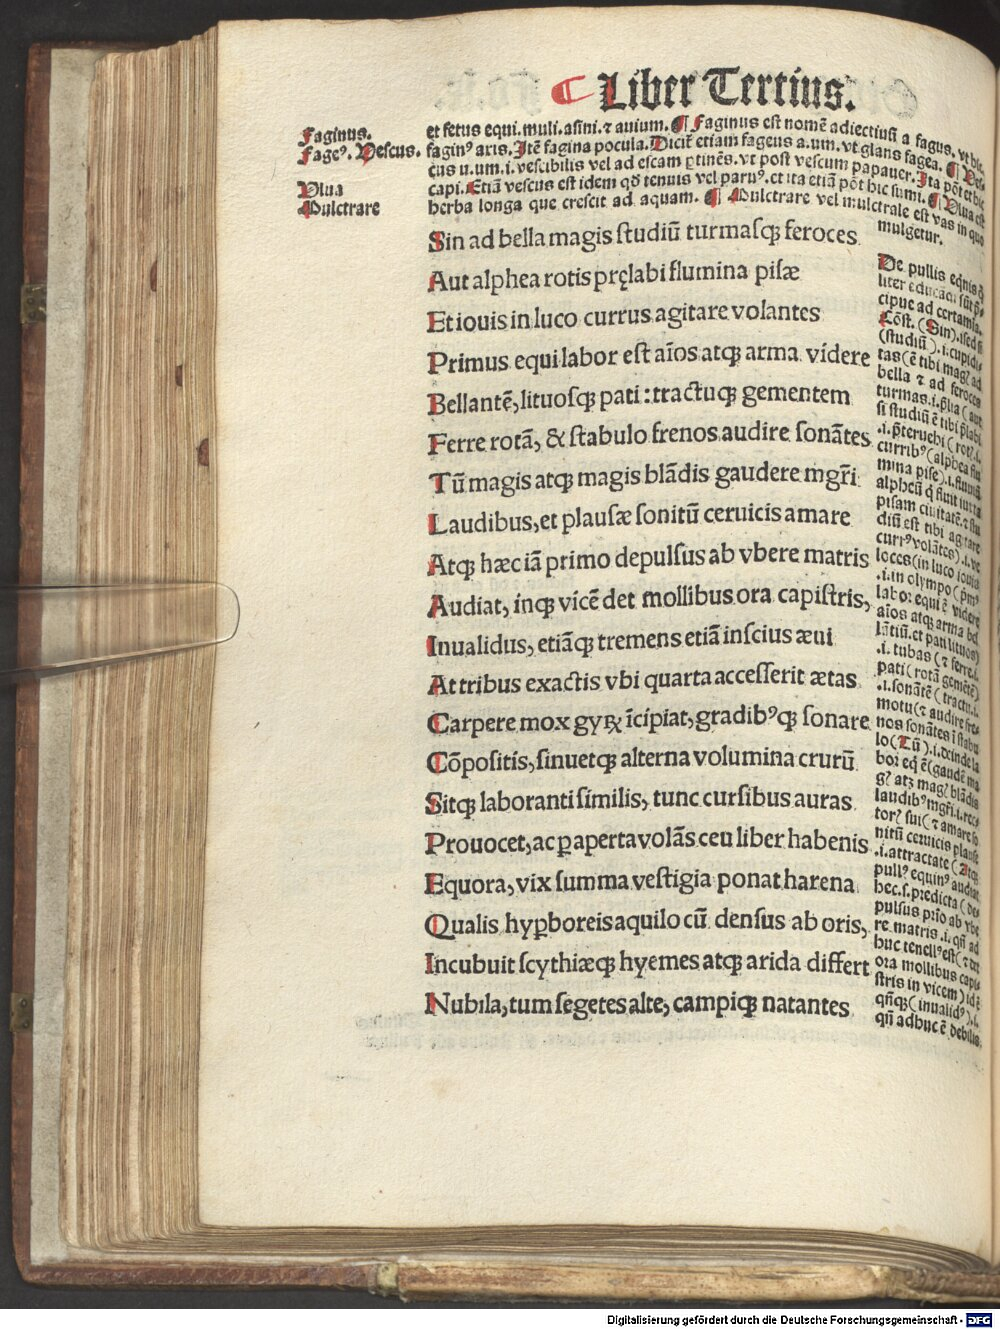 Liber Tertius.
Faginus.
Fageꝰ. Vescus.
Vlua
Mulctrare
et fetus equi. muli. asini. ⁊ auium. ¶ Faginus est nomē adiectiuū a fagus. vt hic
faginꝰ axis. Itē fagina pocula. Dicit̄ etiam fageus a.um. vt glans fagea. ¶ Ves-
cus u.um.i. vescibilis vel ad escam ꝑtinēs. vt post vescum papauer. Ita pōt et hic
capi. Etiā vescus est idem qď tenuis vel paruꝰ. et ita etiā pōt hic sumi. ¶ Vlua est
herba longa que crescit ad aquam. ¶ Mulctrare vel mulctrale est vas in quo
mulgetur.
Sin ad bella magis studiū turmasqꝫ feroces
Aut alphea rotis pręlabi flumina pisæ
Et iouis in luco currus agitare volantes
Primus equi labor est aīos atqꝫ arma videre
Bellantē, lituosqꝫ pati : tractuqꝫ gementem
Ferre rotā, & stabulo frenos audire sonātes
Tū magis atqꝫ magis blādis gaudere mgr̄i
Laudibus, et plausæ sonitū ceruicis amare
Atqꝫ hæc iā primo depulsus ab vbere matris
Audiat, inqꝫ vicē det mollibus ora capistris,
Inualidus, etiāqꝫ tremens etiā inscius æui
At tribus exactis vbi quarta accesserit ætas
Carpere mox gyꝝ īcipiat, gradibꝰqꝫ sonare
Cōpositis, sinuetqꝫ alterna volumina crurū
Sitqꝫ laboranti similis, tunc cursibus auras
Prouocet, ac ꝑ aperta volās ceu liber habenis
Equora, vix summa vestigia ponat harena
Qualis hyꝑboreis aquilo cū densus ab oris,
Incubuit scythiæqꝫ hyemes atqꝫ arida differt
Nubila, tum segetes alte, campiqꝫ natantes
De pullis equis
cipue ad certamīa.
Cōst. (Sin).i. sed si
(studiū).i. cupidi-
tas (ē tibi mag̃ ad
bella ⁊ ad feroces
turmas .i. p̄lia (aut
si studiū ē tibi p̄labi
.i. p̄teruehi (rot̃ .i.
curribꝰ (alphea flu
mina pise) .i. fluuiū
alpheū q̄ fluit iuxta
pisam ciuitatē. ⁊ stu
diū est tibi agitare
currꝰ volātes) .i. ve
loces (in luco iouis
.i. in olympo (p̄mꝰ
labor equi ē videre
aīos atqꝫ arma bel
lātiū. et pati lituos)
.i. tubas (⁊ ferre .i.
pati (rotā gemētē)
.i. sonātē (tractu .i.
motu (⁊ audire fre-
nos sonātes ī stabu
lo (Tū) .i. deinde la
bor eq̄ ē (gaudē ma
g̃ atqꝫ mag̃ blādis
laudibꝰ mgr̄i .i. rec-
tor̃ sui (⁊ amare so
nitū ceruicis plause
.i. attractate (Atqꝫ
pullꝰ equinꝰ audiat
hec .s. predicta (de-
pulsus prīo ab vbe
re matris .i. qn̄ ad
huc tenellꝰ est (⁊ det
ora mollibus capi-
stris in vicem) id ē
qn̄qꝫ (inualidꝰ) .i.
qn̄ adhuc ē debilis
Digitalisierung gefördert durch die Deutsche Forschungsgemeinschaft - DFG